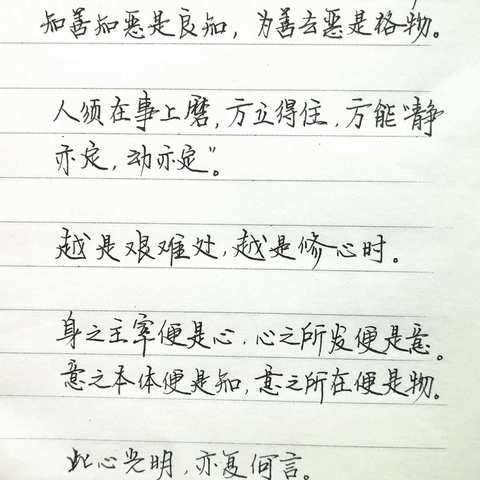 知善知恶是良知，为善去恶是格物。
人须在事上磨，方立得住，方能“静
亦定，动亦定”。
越是艰难处，越是修心时。
身之主宰便是心，心之所发便是意。
意之本体便是知，意之所在便是物。
此心光明，亦复何言。